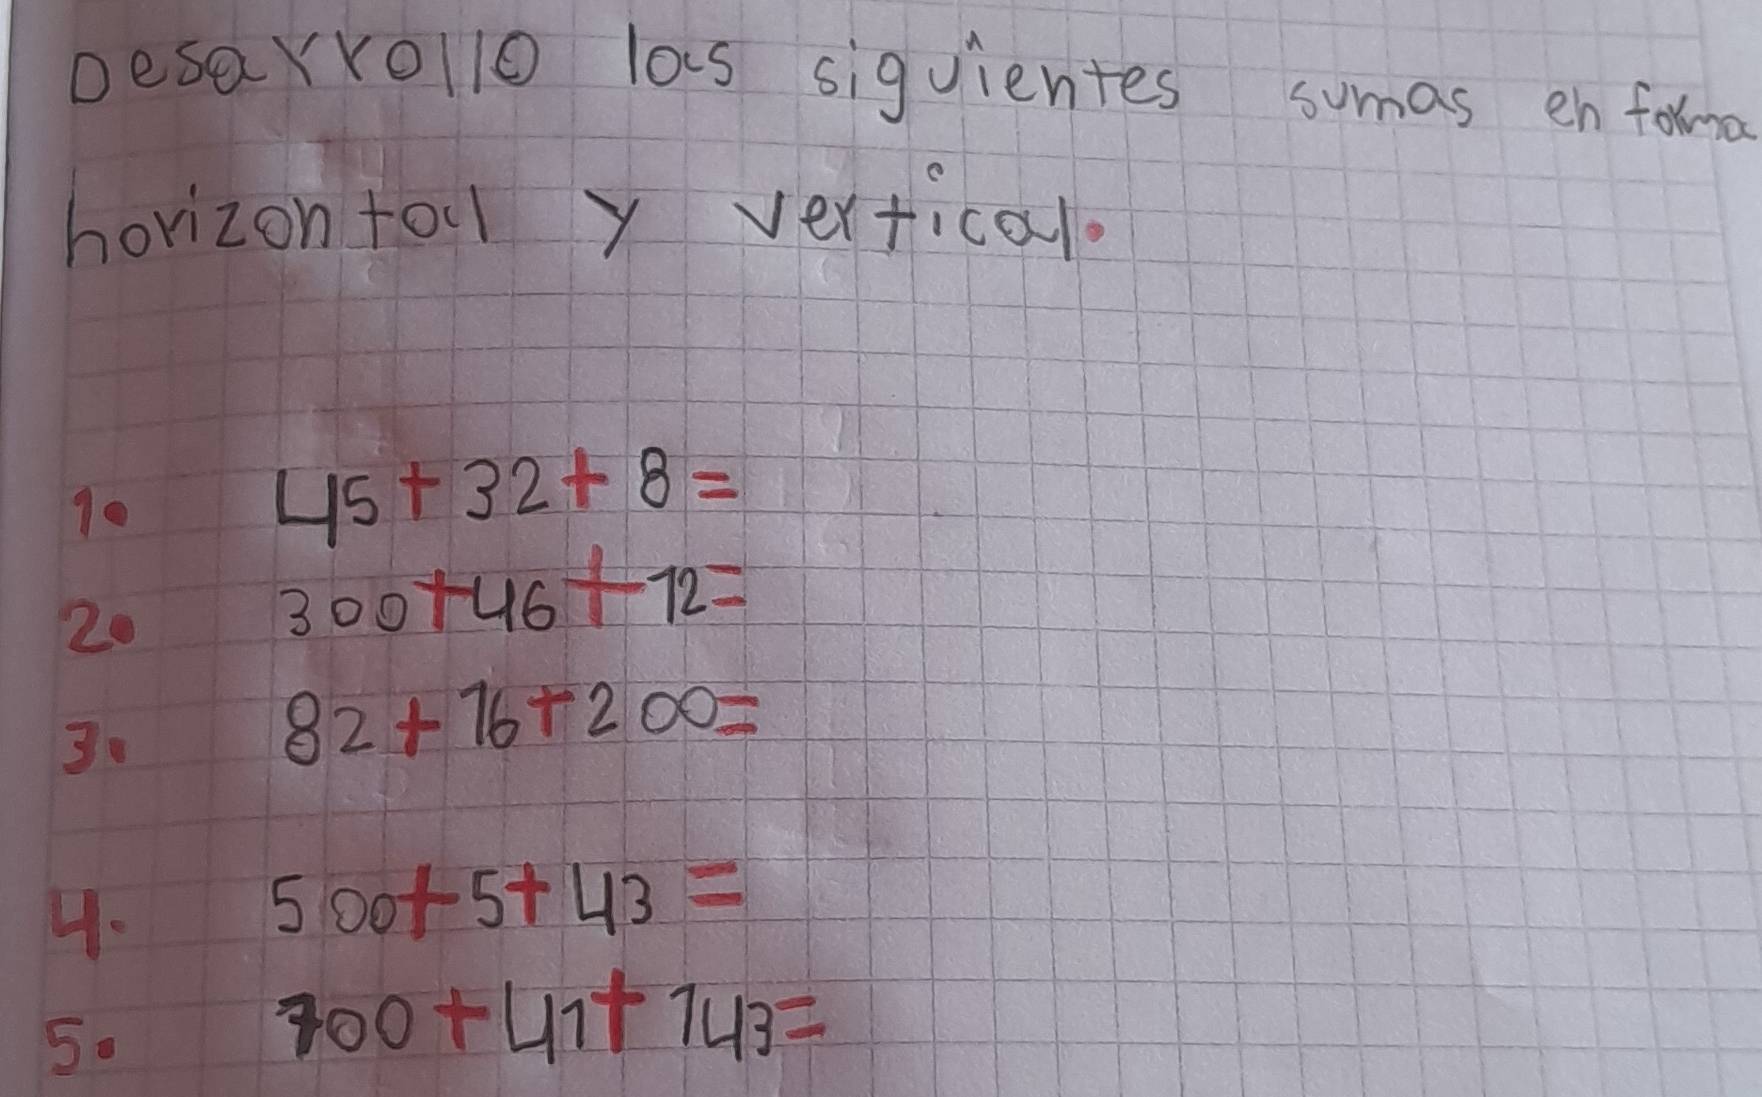 Desarrollo las siguientes sumas en forma
horizontal y vertical.
1. 45+32+8=
2. 300+46+12=
3. 82+16+200=
4. 500+5+43=
5. 700+41+143=